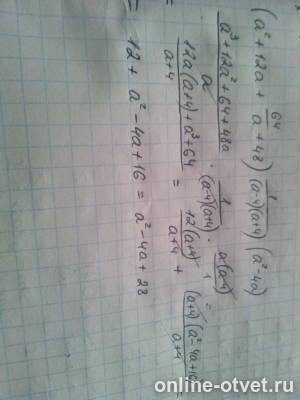 (a² + 12a + 64/a + 48) 1/((a-4)(a+4)) (a² - 4a)
(a³ + 12a² + 64 + 48a)/a · 1/((a-4)(a+4)) · a(a-4)/1 =
= (12a(a+4) + a³ + 64)/(a+4) = 12(a+4)/(a+4) + (a+4)(a² - 4a + 16)/(a+4) =
= 12 + a² - 4a + 16 = a² - 4a + 28
online-otvet.ru